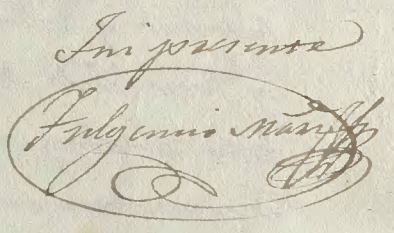 Fui presente
Fulgencio Marin